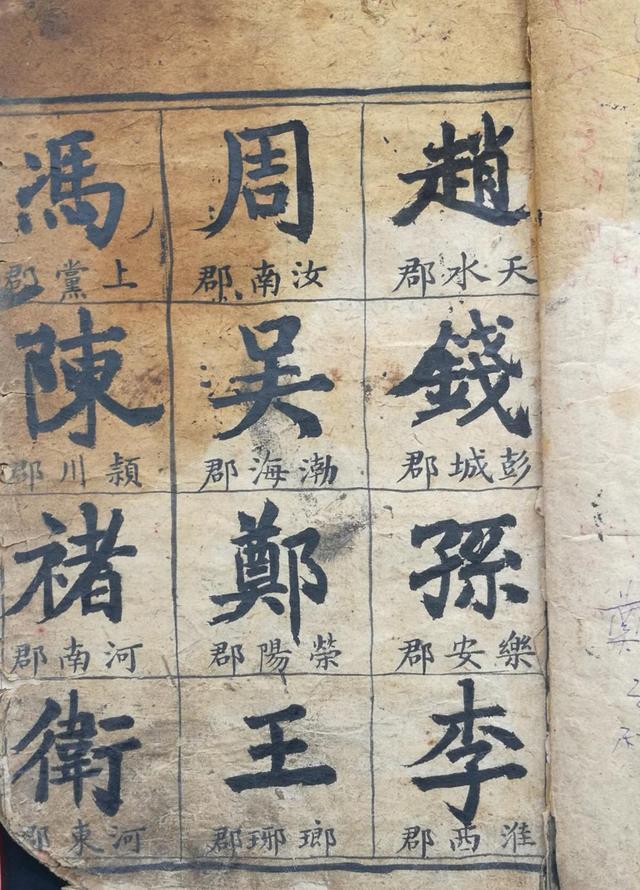 趙
天水郡
錢
彭城郡
孫
樂安郡
李
淮西郡
周
汝南郡
吴
渤海郡
鄭
榮陽郡
王
瑯琊郡
馮
上黨郡
陳
頴川郡
褚
河南郡
衛
河東郡